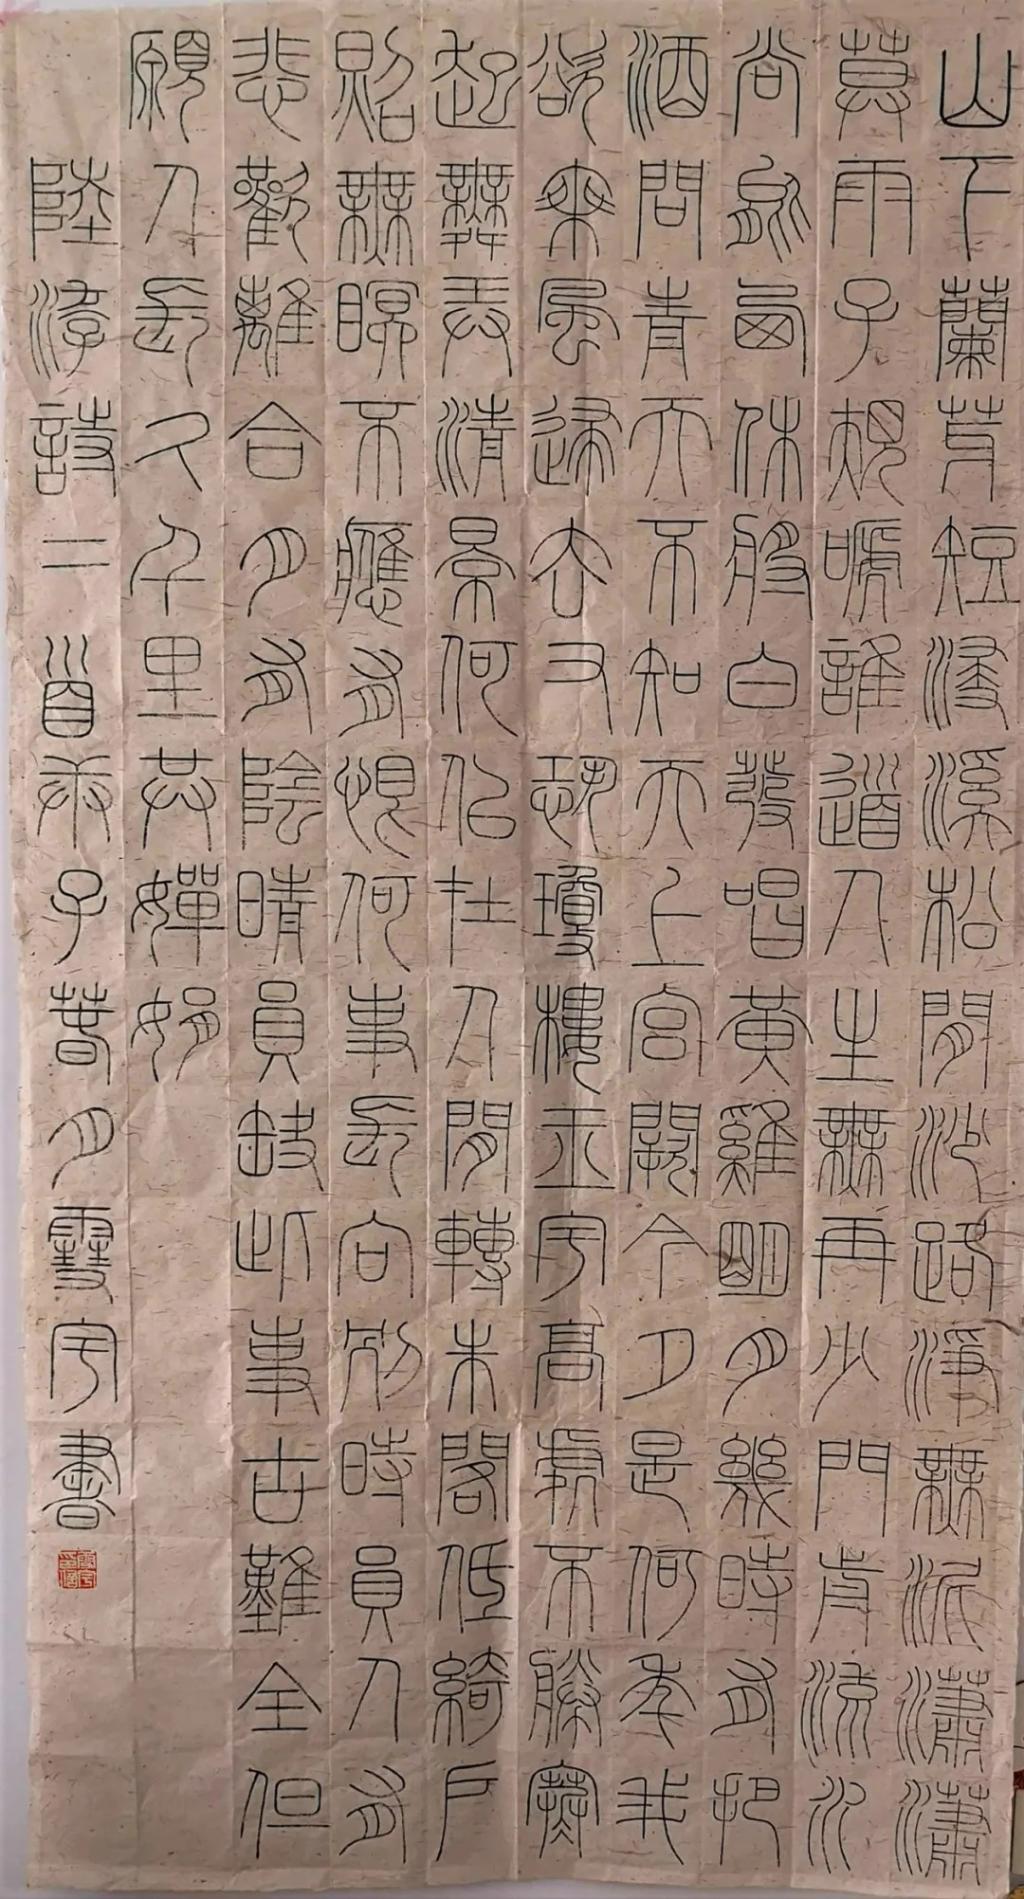 山下蘭芽短浸溪松間沙路淨無泥瀟瀟
莫雨子規嗁誰道人生無再少門前流水
尚能西休將白發唱黃雞明月幾時有把
酒問青天不知天上宮闕今夕是何年我
欲乘風歸去又恐瓊樓玉宇高處不勝寒
起舞弄清景何似在人間轉朱閣低綺戶
照無眠不應有恨何事長向別時員人有
悲歡離合月有陰晴員缺此事古難全但
願人長久千里共嬋娟
陸游詩二首庚子春月雪宇書